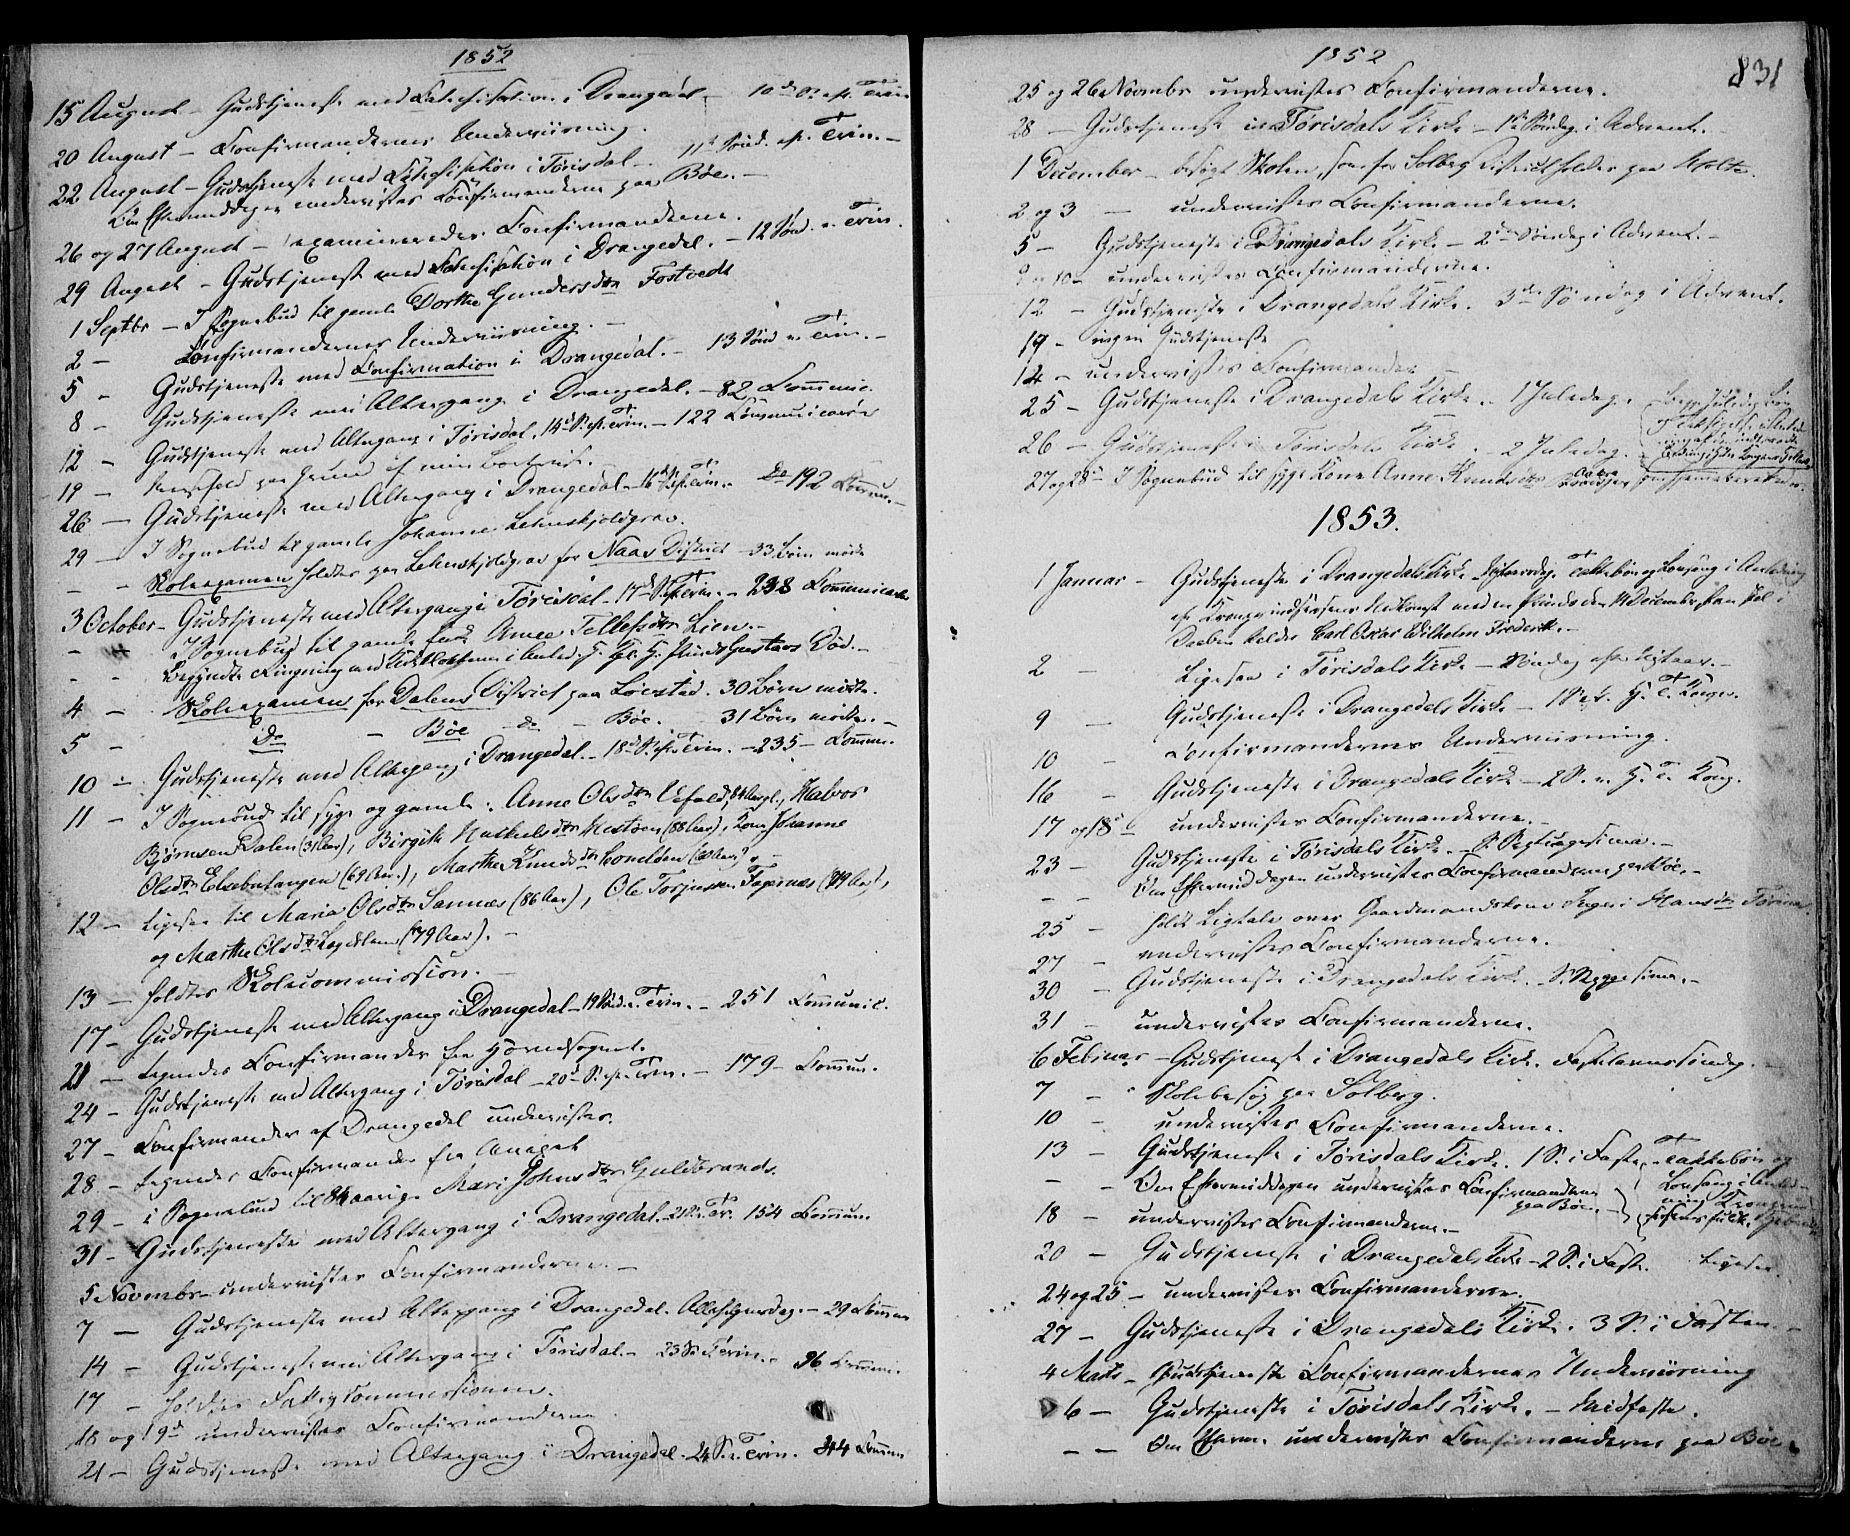 1852
15 August – Gudstjeneste med Catechisation i Drangedal – 10de S. ef. Trin.
20 August – Confirmandernes Underviisning.
22 August – Gudstjeneste med Catechisation i Törisdal – 11te Sönd. ef. Trin. –
Om Eftermiddagen undervistes Confirmanderne paa Böe. –
26 og 27 August – examineredes Confirmanderne.
29 August – Gudstjeneste med Catechisation i Drangedal. – 12 Sönd. e. Trin.
1 Septbr – I Sognebud til gamle Dorthe Gundersdtr Fostvedt
2 – Confirmandernes Underviisning. –
5 – Gudstjeneste med Confirmation i Drangedal. – 13 Sönd e. Trin. –
8 – Gudstjeneste med Altergang i Drangedal. – 82 Commun.
12 – Gudstjeneste med Altergang i Törisdal. 14de S. ef. Trin. – 122 Communicanter
19 – Messefald paa Grund af min Bortreise.
26 – Gudstjeneste med Altergang i Drangedal – 16de S. ef. Trin. – 192 Commun. –
29 – I Sognebud til gamle Johanne Lehnskjoldgrav.
– – Skoleexamen holdtes paa Lehnskjoldgrav for Naas District – 33 Börn mödte
3 October – Gudstjeneste med Altergang i Törisdal – 17de S. ef. Trin. – 238 Communicanter
– – I Sognebud til gamle Anne Tellefsdtr Lien. –
– – Begyndte Ringning med Kirkeklokkerne i Anled. H. Kgl. H. Prinds Gustavs Död. –
4 – Skoleexamen for Dalens District paa Löested. 30 Börn mödte.
5 – Do – Böe – do – Böe. – 31 Börn mödte. –
10 – Gudstjeneste med Altergang i Drangedal – 18de S. ef. Trin. – 235 – Commun.
11 – I Sognebud til syge og gamle: Anne Olsdtr 84 Aar gl., Halvor
Björnsen Dalen (31 Aar), Birgith (88 Aar), Kone Johanne
Olsdtr Elsebutangen (69 Aar), Marthe Knudsdtr
12 – Ligesaa til Maria Olsdtr Sannæs (86 Aar), Ole Torjussen Fagernæs (89 Aar),
og Marthe Olsdtr (79 Aar). –
13 – holdtes Skolecommission. –
17 – Gudstjeneste med Altergang i Drangedal – 19 Sönd. e. Trin. – 251 Communic.
21 – tegnedes Confirmander fra Hovedsognet.
24 – Gudstjeneste med Altergang i Törisdal – 20de S. ef. Trin. – 179 – Commun.
27 – Confirmander af Drangedal undervistes.
28 – tegnedes Confirmander fra Annexet
29 – i Sognebud til 84 aarige Mari Johnsdtr Guldbrands.
31 – Gudstjeneste med Altergang i Drangedal – 21 S. e. Tr. 154 Commun.
5 Novembr – undervistes Confirmanderne. –
7 – Gudstjeneste med Altergang i Drangedal. Allehelgensdag. – 29 Commun
14 – Gudstjeneste med Altergang i Törisdal – 23 S. e. Trin. – 96 Commun.
17 – holdtes Fattigcommissionen.
18 og 19de undervistes Confirmanderne.
21 – Gudstjeneste med Altergang i Drangedal – 24 S. e. Trin. 344 Commun
1852
831
25 og 26 Novembr undervistes Confirmanderne.
28 – Gudstjeneste i Törisdals Kirke – 1ste Söndag i Advent.
1 December – besögt Skolen, som for Solberg District holdes paa Holte.
2 og 3 – undervistes Confirmanderne.
5 – Gudstjeneste i Drangedals Kirke – 2den Söndag i Advent. –
9 og 10 – undervistes Confirmanderne.
12 – Gudstjeneste i Drangedals Kirke. 3die Söndag i Advent.
19 – ingen Gudstjeneste
14 – undervistes Confirmander
25 – Gudstjeneste i Drangedals Kirke. – 1 Juledag.
26 – Gudstjeneste i Törisdals Kirke. – 2 Juledag. –
27 og 28de I Sognebud til syge Kone Anne Knudsdtr
1853.
1 Januar – Gudstjeneste i Drangedals Kirke Nytaarsdag. Takkebön og Lovsang i Anledning
af Kronprindsessens Nedkomst med en Prinds den 14 December, som skal i
Daaben kaldes Carl Oscar Wilhelm Frederik. –
2 – Ligesaa i Törisdals Kirke – Söndag efter Nytaar. –
9 – Gudstjeneste i Drangedals Kirke – 1 S. ef. H. 3 Konger.
10 – Confirmandernes Underviisning.
16 – Gudstjeneste i Drangedals Kirke – 2 S. e. H. 3 Kong.
17 og 18de undervistes Confirmanderne. –
23 – Gudstjeneste i Törisdals Kirke. – S. Septuagesima. –
– – Om Eftermiddagen undervistes Confirmanderne paa Böe. –
25 – holdt Ligtale over Gaardmandskone Inger Hansdtr
27 – undervistes Confirmanderne.
30 – Gudstjeneste i Drangedals Kirke. S. Sexagesima. –
31 – undervistes Confirmanderne.
6 Februar – Gudstjeneste i Drangedals Kirke. Fastelavnssöndag.
7 – Skolebesög paa Solberg.
10 – undervistes Confirmanderne.
13 – Gudstjeneste i Törisdals Kirke. 1 S. i Faste, – Takkebön og
Lovsang i Anledning
– – Om Eftermiddagen undervistes Confirmanderne
paa Böe. –
18 – undervistes Confirmanderne. –
20 – Gudstjeneste i Drangedals Kirke – 2 S. i Faste. Ligesaa.
24 og 25 – undervistes Confirmanderne.
27 – Gudstjeneste i Drangedals Kirke. 3 S. i Fasten. –
4 Marts – Confirmandernes Underviisning
6 – Gudstjeneste i Törisdals Kirke. – Midfaste.
– – Om Efterm. undervistes Confirmanderne paa Böe.